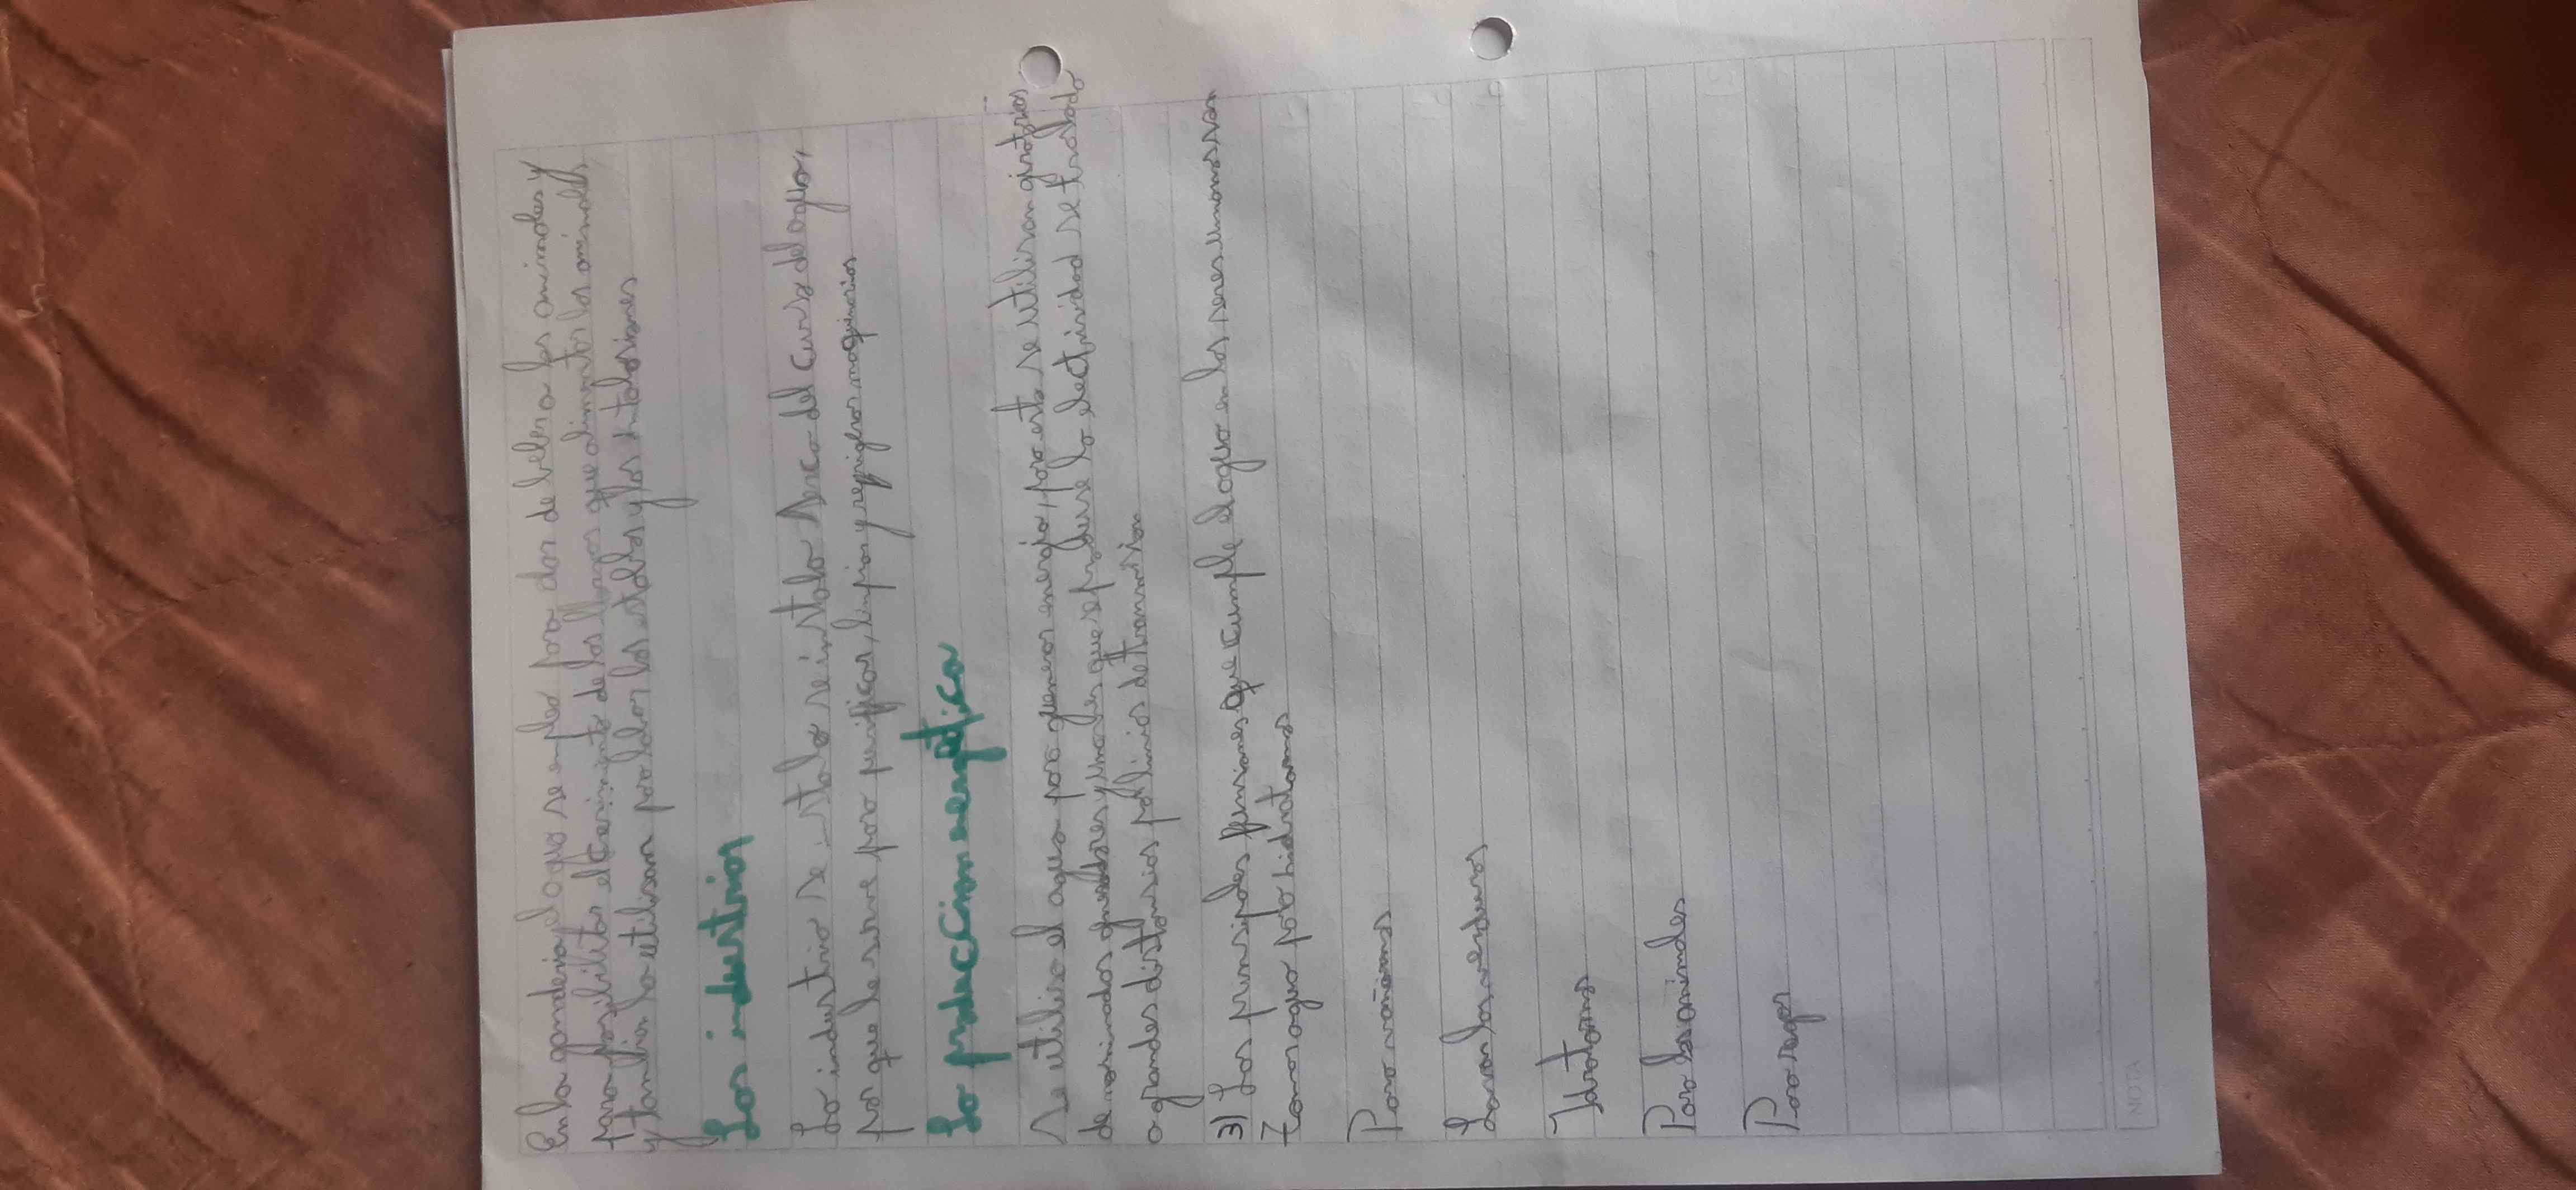 En la ganaderia, el agua se emplea para dar de beber a los animales y
para posibilitar el crecimiento de los que alimentos los animales,
y tambien la utilisan para labar los establos y las instalasiones
Las industrias
La industria se instala serca del curso del agua,
por que le sirve para purificar, limpiar y maquinarias
La produccion energética
Se utilisa el agua para generar energia, para esto se utilisan
denominados y que se produse la electrisidad se traslada
a grandes distansias por linias de transmision
3) Las prinsipales funsiones que cumple el agua en los seres umanos son
Tomar agua para hidratarnos
Para
Lavar las verduras
Para los animales
Para regar
NOTA